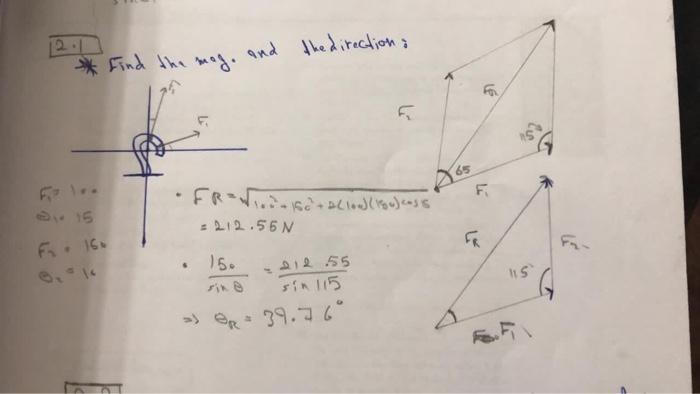 2.1
* Find the mag. and the direction:
F₂
F₁
F₁ = 100
θ₁ = 15
F₂ = 150
• FR = √100² + 150² + 2(100)(150)cos
= 212.55 N
• 150 / sin θ = 212.55 / sin 115
=> θR = 39.76°
F₂
FR
115°
65
F₁
FR
F₂
115°
F₁